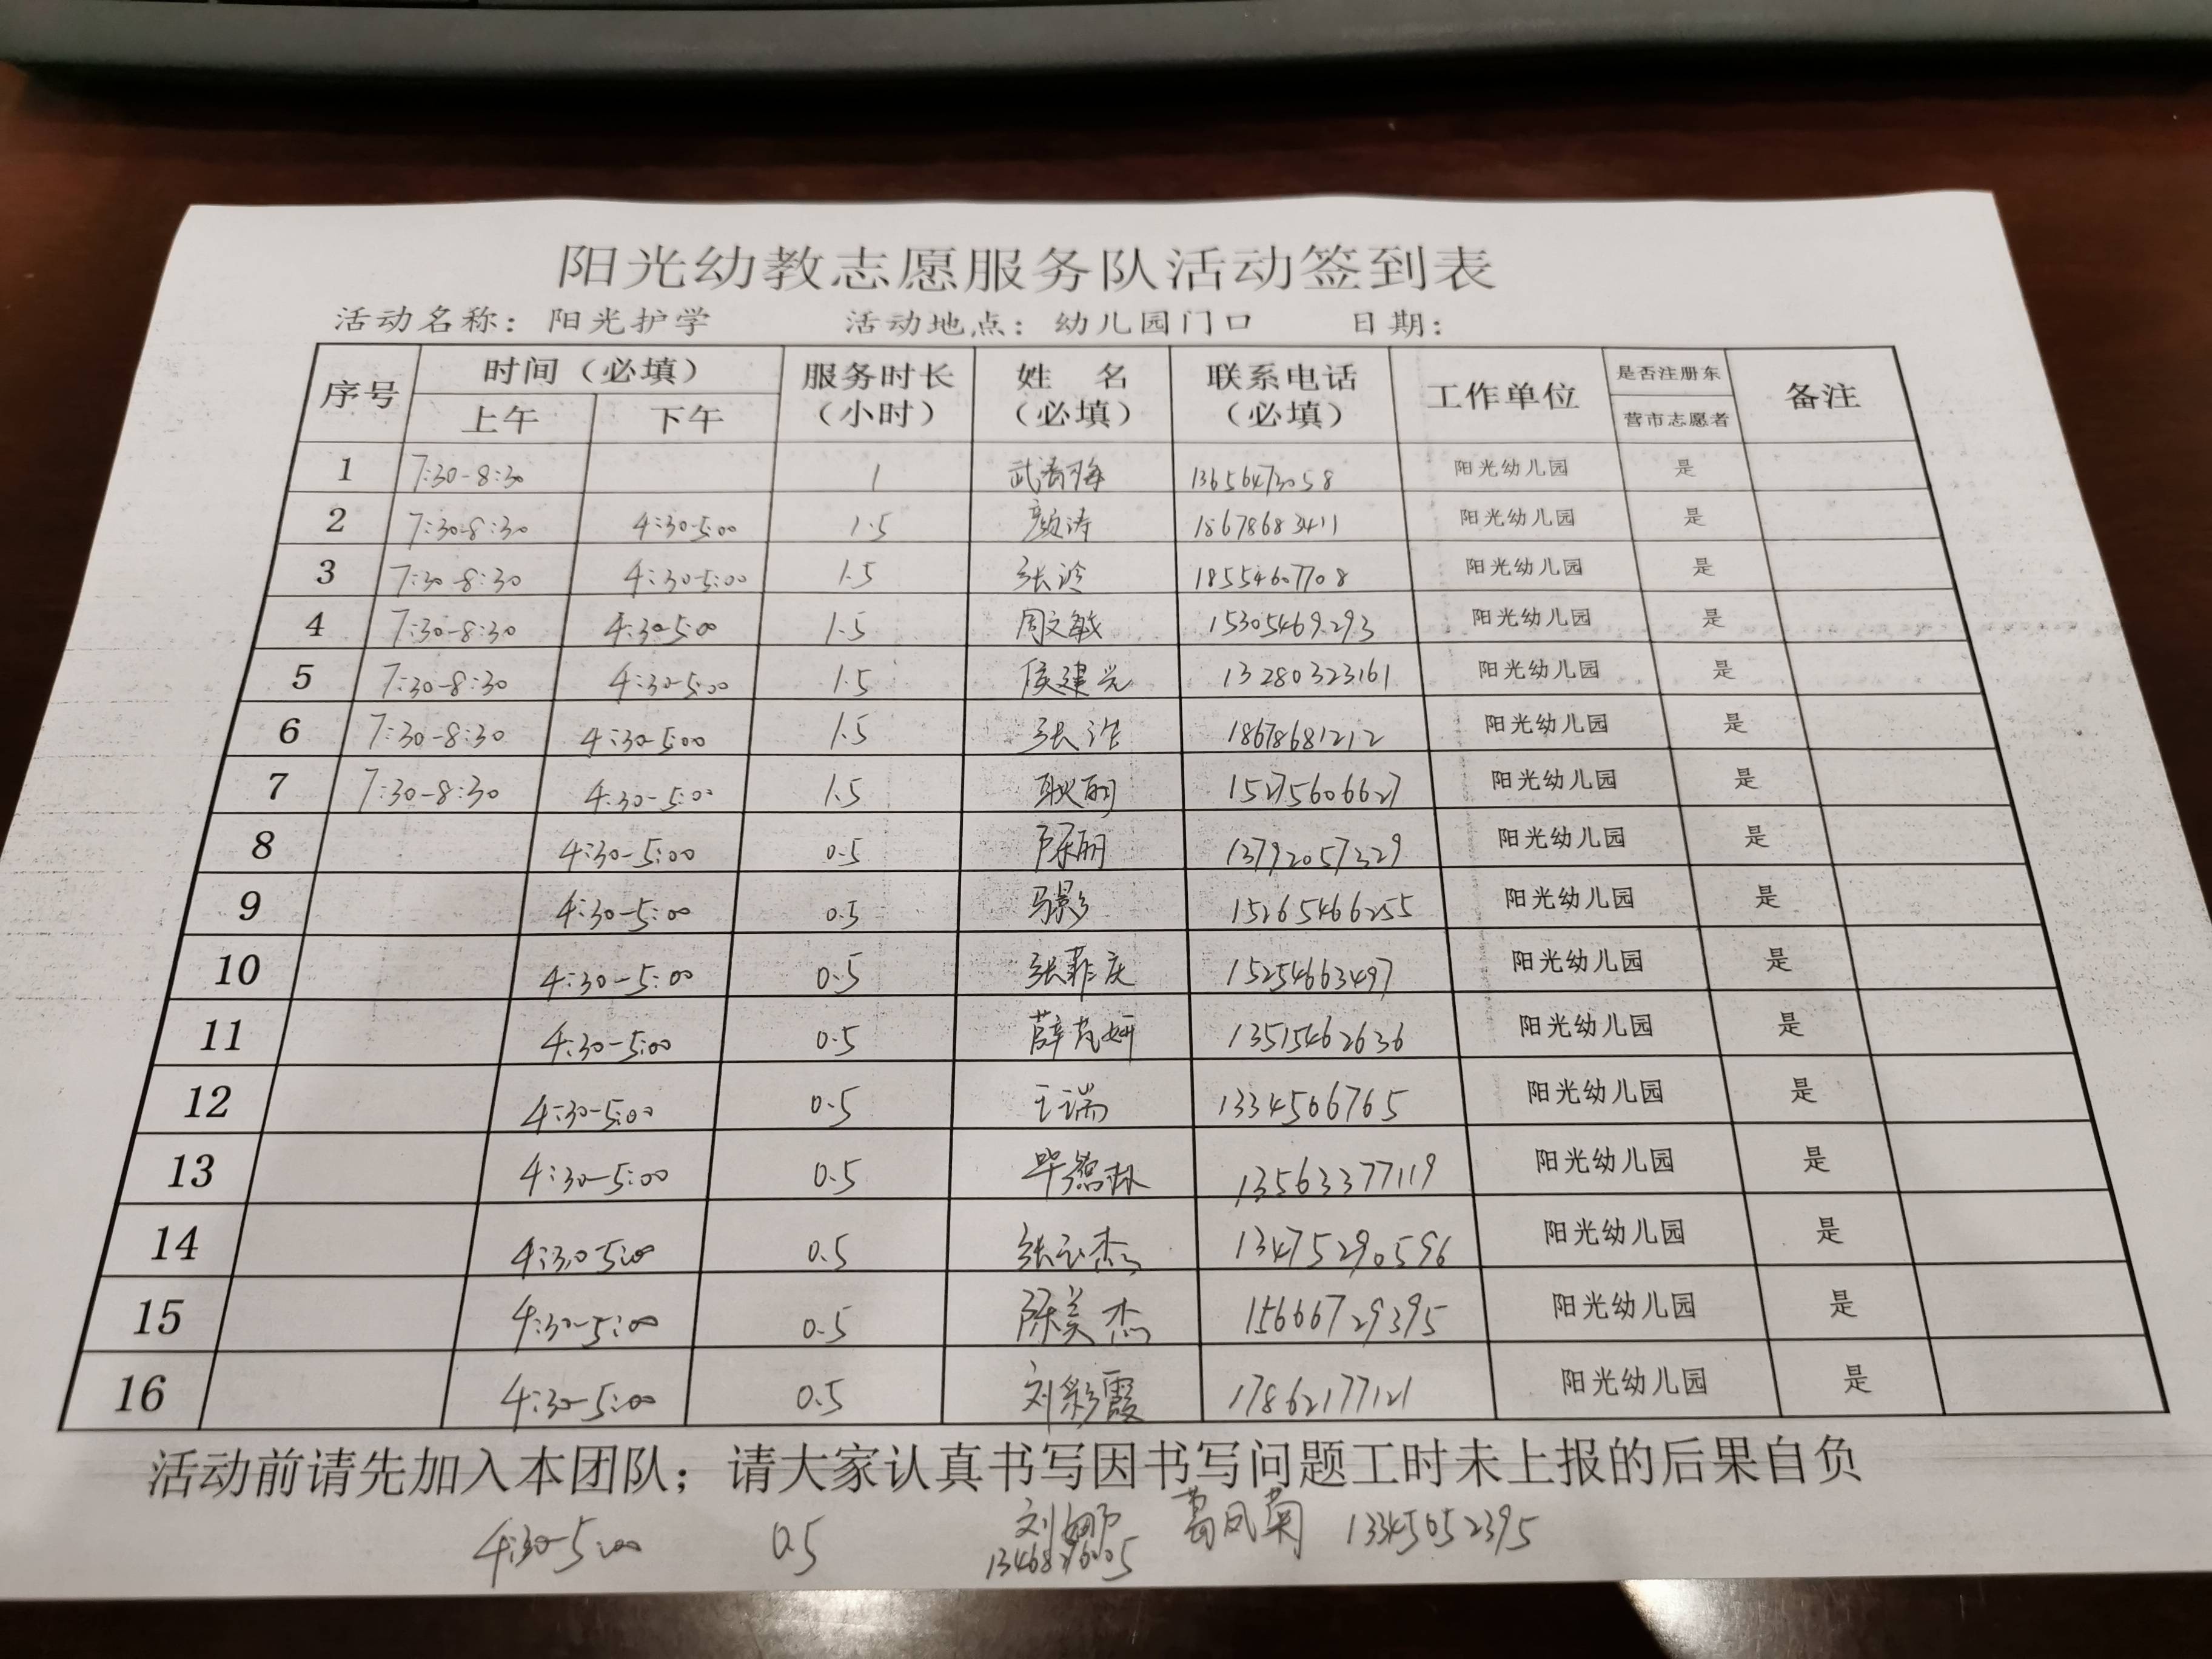 阳光幼教志愿服务队活动签到表
活动名称：阳光护学 活动地点：幼儿园门口 日期：
序号 时间（必填） 上午 下午 服务时长（小时） 姓 名（必填） 联系电话（必填） 工作单位 是否注册东营市志愿者 备注
1 7:30-8:30 1 13656473058 阳光幼儿园 是
2 7:30-8:30 4:30-5:00 1.5 颜涛 18678683411 阳光幼儿园 是
3 7:30-8:30 4:30-5:00 1.5 张玲 18554607708 阳光幼儿园 是
4 7:30-8:30 4:30-5:00 1.5 周文敏 15305469293 阳光幼儿园 是
5 7:30-8:30 4:30-5:00 1.5 侯建光 13280323161 阳光幼儿园 是
6 7:30-8:30 4:30-5:00 1.5 18678681212 阳光幼儿园 是
7 7:30-8:30 4:30-5:00 1.5 耿丽 15275606627 阳光幼儿园 是
8 4:30-5:00 0.5 陈丽 13792057329 阳光幼儿园 是
9 4:30-5:00 0.5 马影 15265466255 阳光幼儿园 是
10 4:30-5:00 0.5 张菲庆 15254663497 阳光幼儿园 是
11 4:30-5:00 0.5 13515462636 阳光幼儿园 是
12 4:30-5:00 0.5 王瑞 1334506765 阳光幼儿园 是
13 4:30-5:00 0.5 13563377119 阳光幼儿园 是
14 4:30-5:00 0.5 张玉杰 13475290596 阳光幼儿园 是
15 4:30-5:00 0.5 陈美杰 15666729395 阳光幼儿园 是
16 4:30-5:00 0.5 刘彩霞 17862177121 阳光幼儿园 是
活动前请先加入本团队；请大家认真书写因书写问题工时未上报的后果自负
4:30-5:00 0.5 刘娜 葛凤菊 13345052395